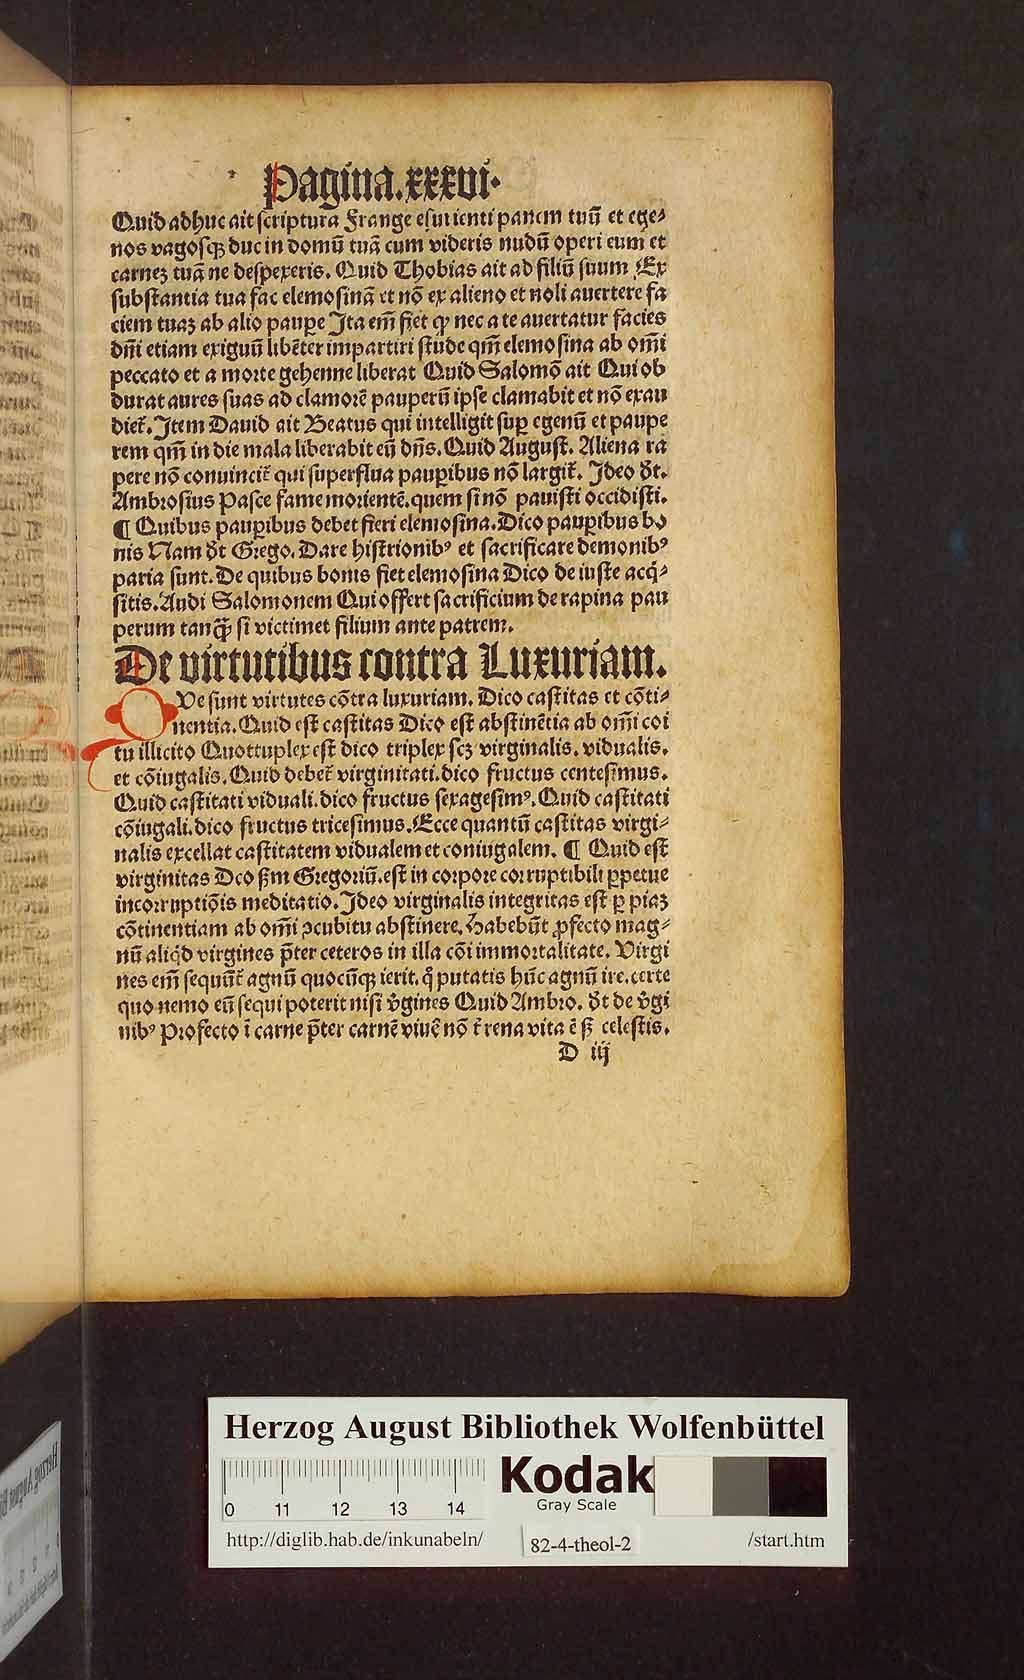 Pagina.xxxvi.
Quid adhuc ait scriptura Frange esurienti panem tuū et ege⸗
nos vagosqꝫ duc in domū tuā cum videris nudū operi eum et
carneꝫ tuā ne despexeris. Quid Thobias ait ad filiū suum Ex
substantia tua fac elemosinā et nō ex alieno et noli avertere fa
ciem tuaꝫ ab alio paupe Ita em̄ fiet ꝙ nec a te avertatur facies
dn̄i etiam exiguū libēter impartiri stude qm̄ elemosina ab om̄i
peccato et a morte gehenne liberat Quid Salomō ait Qui ob
durat aures suas ad clamorē pauperū ipse clamabit et nō exau
diet̄. Item David ait Beatus qui intelligit suꝑ egenū et paupe
rem qm̄ in die mala liberabit eū dn̄s. Quid August. Aliena ra
pere nō convincit̄ qui superflua pauꝑibus nō largit̄. Ideo d̄t.
Ambrosius Pasce fame morientē. quem si nō pavisti occidisti.
¶ Quibus pauꝑibus debet fieri elemosina. Dico pauꝑibus bo
nis Nam d̄t Grego. Dare histrionibꝰ et sacrificare demonibꝰ
paria sunt. De quibus bonis fiet elemosina Dico de iuste acq̄⸗
sitis. Audi Salomonem Qui offert sacrificium de rapina pau
perum tanꝙ̄ si victimet filium ante patrem.
De virtutibus contra Luxuriam.
Que sunt virtutes cōtra luxuriam. Dico castitas et cōti⸗
nentia. Quid est castitas Dico est abstinētia ab om̄i coi
tu illicito Quottuplex est dico triplex scꝫ virginalis. vidualis.
et cōiugalis. Quid debet̄ virginitati. dico fructus centesimus.
Quid castitati viduali. dico fructus sexagesimꝰ. Quid castitati
cōiugali. dico fructus tricesimus. Ecce quantū castitas virgi⸗
nalis excellat castitatem vidualem et coniugalem. ¶ Quid est
virginitas Dco ẜm Gregoriū. est in corpore corruptibili ꝑpetue
incorruptiōis meditatio. Ideo virginalis integritas est ꝑ piaꝫ
cōtinentiam ab om̄i ꝯcubitu abstinere. Habebūt ꝓfecto mag⸗
nū aliqd virgines p̄ter ceteros in illa cōi immortalitate. Virgi
nes em̄ sequūt̄ agnū quocūqꝫ ierit. qͦ putatis hūc agnū ire. certe
quo nemo eū sequi poterit nisi v̄gines Quid Ambro. d̄t de v̄gi
nibꝰ Profecto ī carne p̄ter carnē vivē̄ nō t̄rena vita ē ẜ celestis.
D iij
Herzog August Bibliothek Wolfenbüttel
0 11 12 13 14
Kodak
Gray Scale
http://diglib.hab.de/inkunabeln/ 82-4-theol-2 /start.htm